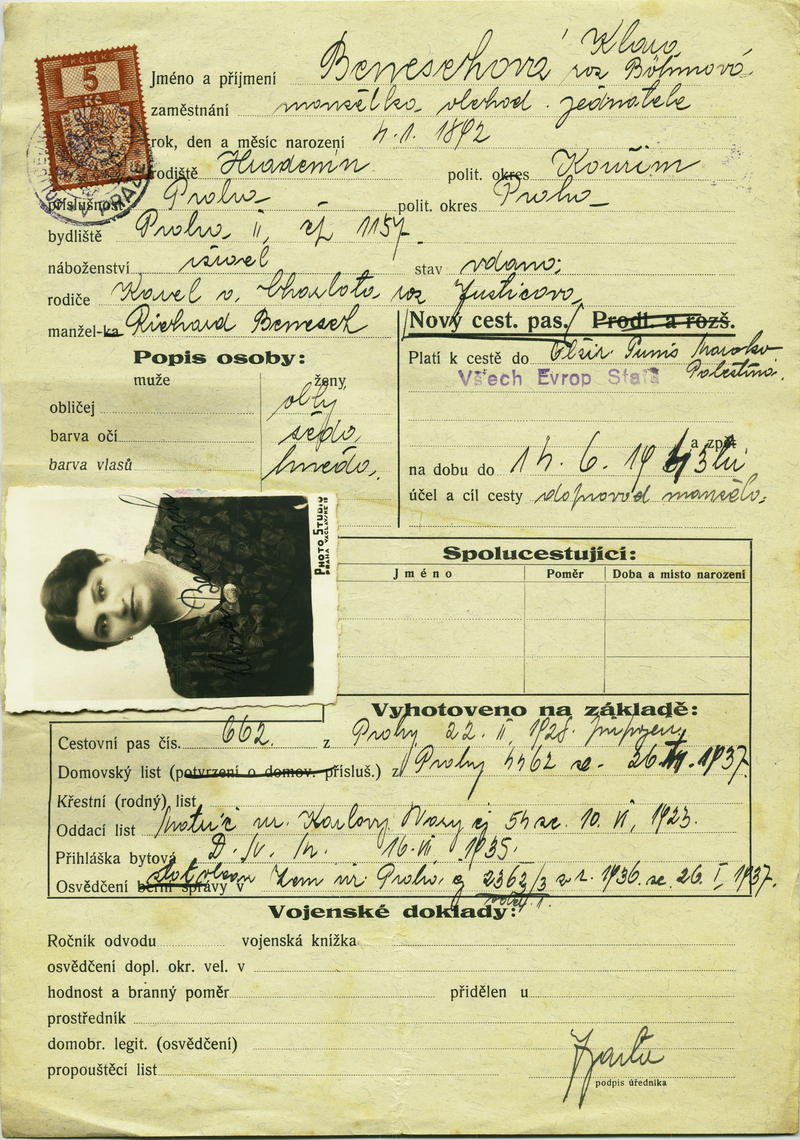 KOLEK
5
Kč
V PRAZE
Jméno a příjmení Beneschová Klara roz Böhmová
zaměstnání manželka obchod. jednatele
rok, den a měsíc narození 4.1. 1892
rodiště Hradenín polit. okres Kouřim
příslušnost Praha polit. okres Praha
bydliště Praha II, čp 1157.
náboženství israel stav vdaná;
rodiče Karel a Charlota roz Justicova
manžel-ka Richard Benesch
Nový cest. pas. / Prodl. a rozš.
Popis osoby:
muže ženy
obličej oblý
barva očí šedá,
barva vlasů hnědá,
Platí k cestě do Alžír Tunis Maroko Palestina.
Všech Evrop Států
a zpět
na dobu do 14. 6. 19
účel a cíl cesty doprovod manžela.
PHOTO STUDIO
PRAHA VÁCLAVSKÉ
Spolucestující:
Jméno Poměr Doba a místo narození
Vyhotoveno na základě:
Cestovní pas čís. 662. z Prahy 22. II, 1928. připojený
Domovský list (potvrzení o domov. přísluš.) z Prahy 4462 ze 26. 1937.
Křestní (rodný) list
Oddací list Karlovy Vary čj 54 ze. 10. VI, 1923.
Přihláška bytová D. IV. 16. VI 1935.
Osvědčení berní správy v Zem úř Praha čj 2362/3 z r. 1936. ze. 26. I 1937.
Vojenské doklady:
Ročník odvodu vojenská knížka
osvědčení dopl. okr. vel. v
hodnost a branný poměr přidělen u
prostředník
domobr. legit. (osvědčení)
propouštěcí list
podpis úředníka